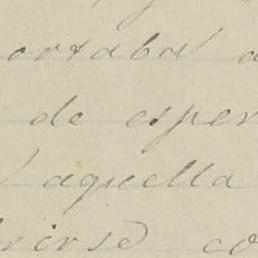 ortaba a
de esper
aquella
rirse co